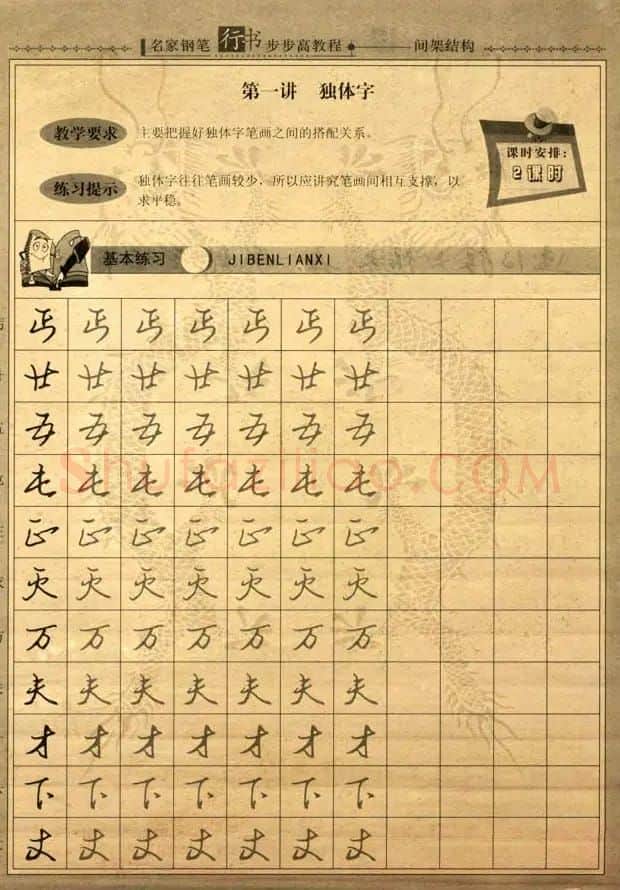 名家钢笔 行书 步步高教程 间架结构
第一讲 独体字
教学要求 主要把握好独体字笔画之间的搭配关系。
练习提示 独体字往往笔画较少，所以应讲究笔画间相互支撑，以
求平稳。
课时安排：
2课时
基本练习 JIBENLIANXI
丐 丐 丐 丐 丐 丐 丐
廿 廿 廿 廿 廿 廿 廿
屯 屯 屯 屯 屯 屯 屯
正 正 正 正 正 正 正
万 万 万 万 万 万 万
夫 夫 夫 夫 夫 夫 夫
才 才 才 才 才 才 才
下 下 下 下 下 下 下
丈 丈 丈 丈 丈 丈 丈
Shufaziliao.COM